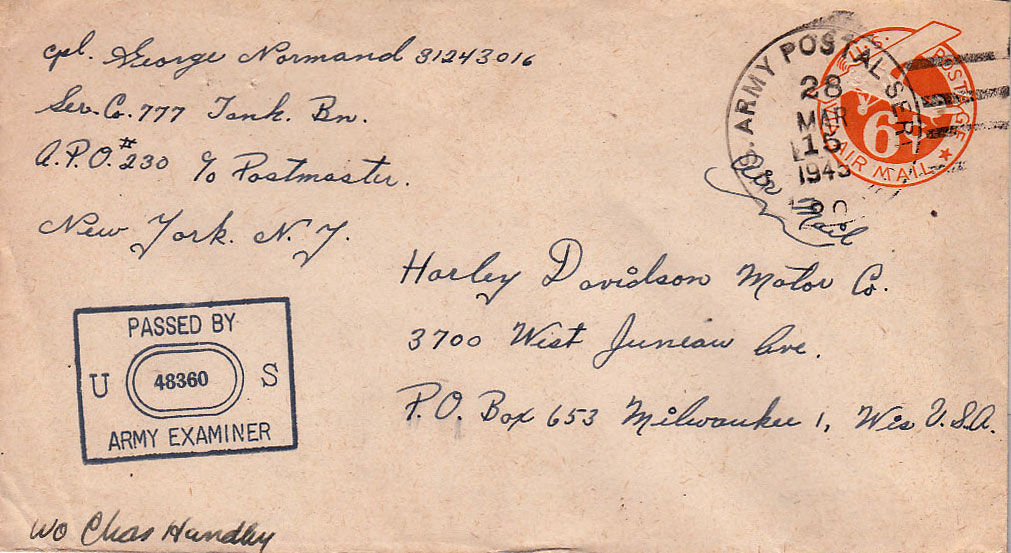 cpl. George Normand 31243016
Ser. Co. 777 Tank. Bn.
A.P.O. #230 c/o Postmaster.
New York. N.Y.
U.S. ARMY POSTAL SER
28
MAR
15
1945
POSTAGE
6
AIR MAIL
Air Mail
Harley Davidson Motor Co.
3700 West Juneau Ave.
P.O. Box 653 Milwaukee 1, Wis U.S.A.
PASSED BY
U 48360 S
ARMY EXAMINER
WO Chas Handley